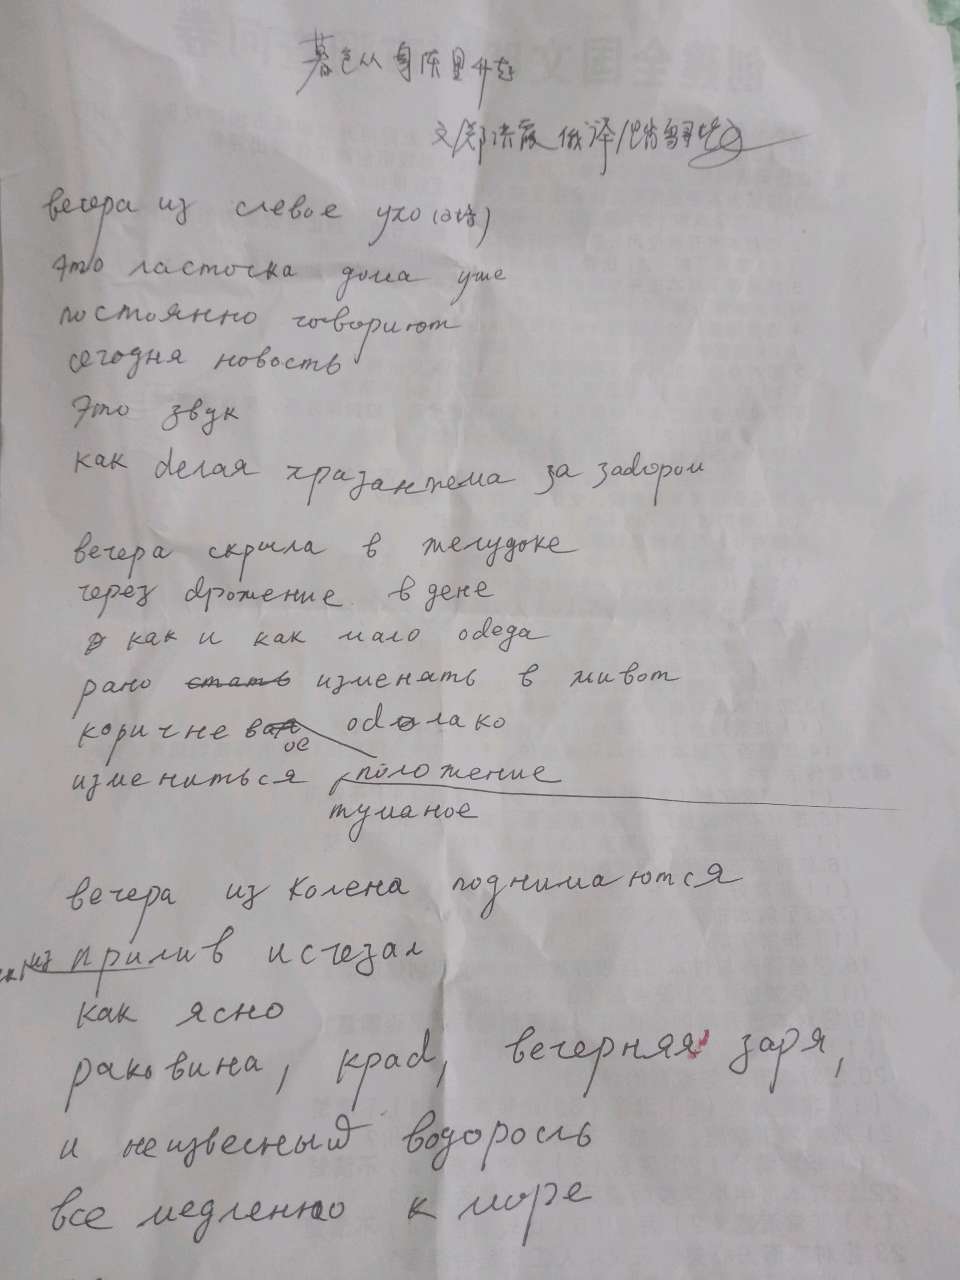 暮色从身体里升起
文/郑 俄译/
вечера из слевое ухо
Это ласточка дома уже
постоянно говориют
сегодня новость
Это звук
как белая хразантема за забором
вечера скрыла в желудоке
через брожение в дене
как и как мало обеда
рано стать изменять в живот
коричневое облако
измениться положение
туманое
вечера из колена поднимаются
из прилив исчезал
как ясно
раковина, краб, вечерняя заря,
и неизвесный водоросль
все медленно к море